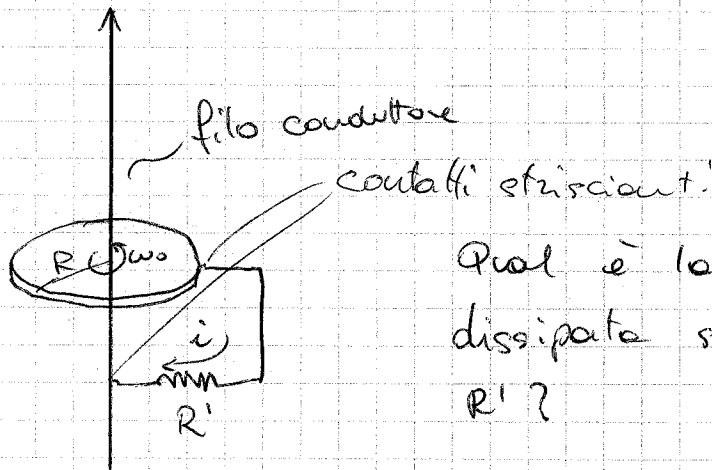 filo conduttore
contatti striscianti
R ω₀
Qual è la
dissipata s
i
R' ?
R'